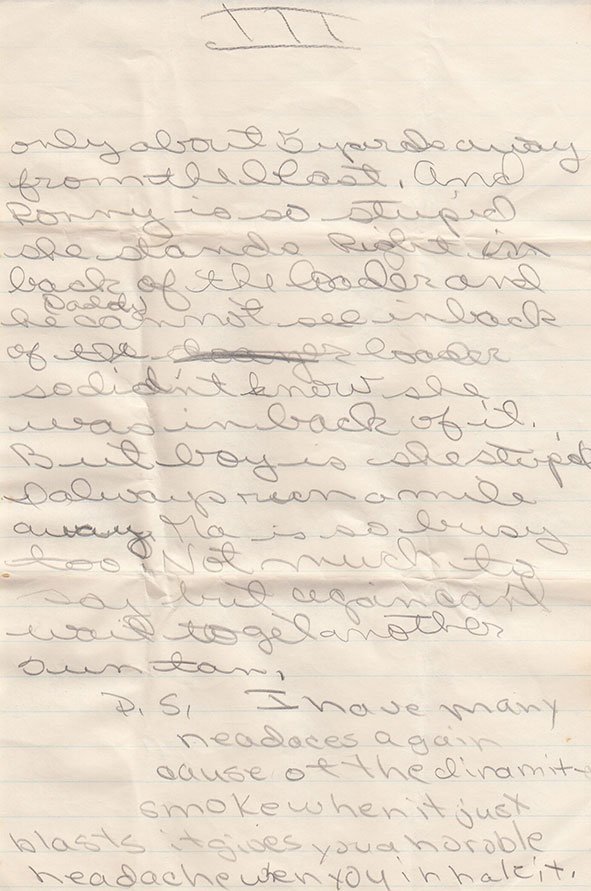 III
only about 5 yards away
from the blast. And
Ronny is so stupid
she stands Right in
back of the loader and
Daddy
he cannot see in back
of the loader
so didn't know she
was in back of it.
But boy is she stupid
I always run a mile
away Ma is so busy
too. Not much to
say but again can't
wait to get another
sun tan.
P.S. I have many
headaces again
cause of the dinamite
smoke when it just
blasts it gives you a horoble
headache when you inhale it.